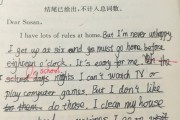 结尾已给出,不计入总词数。
Dear Susan,
I have lots of rules at home. But I'm never unhappy.
I get up at six and go must go home before
eighteen o'clock. It's easy for me.
On school days nights I can't watch TV or
play computer games. But I don't like
to them do those. I clean my house